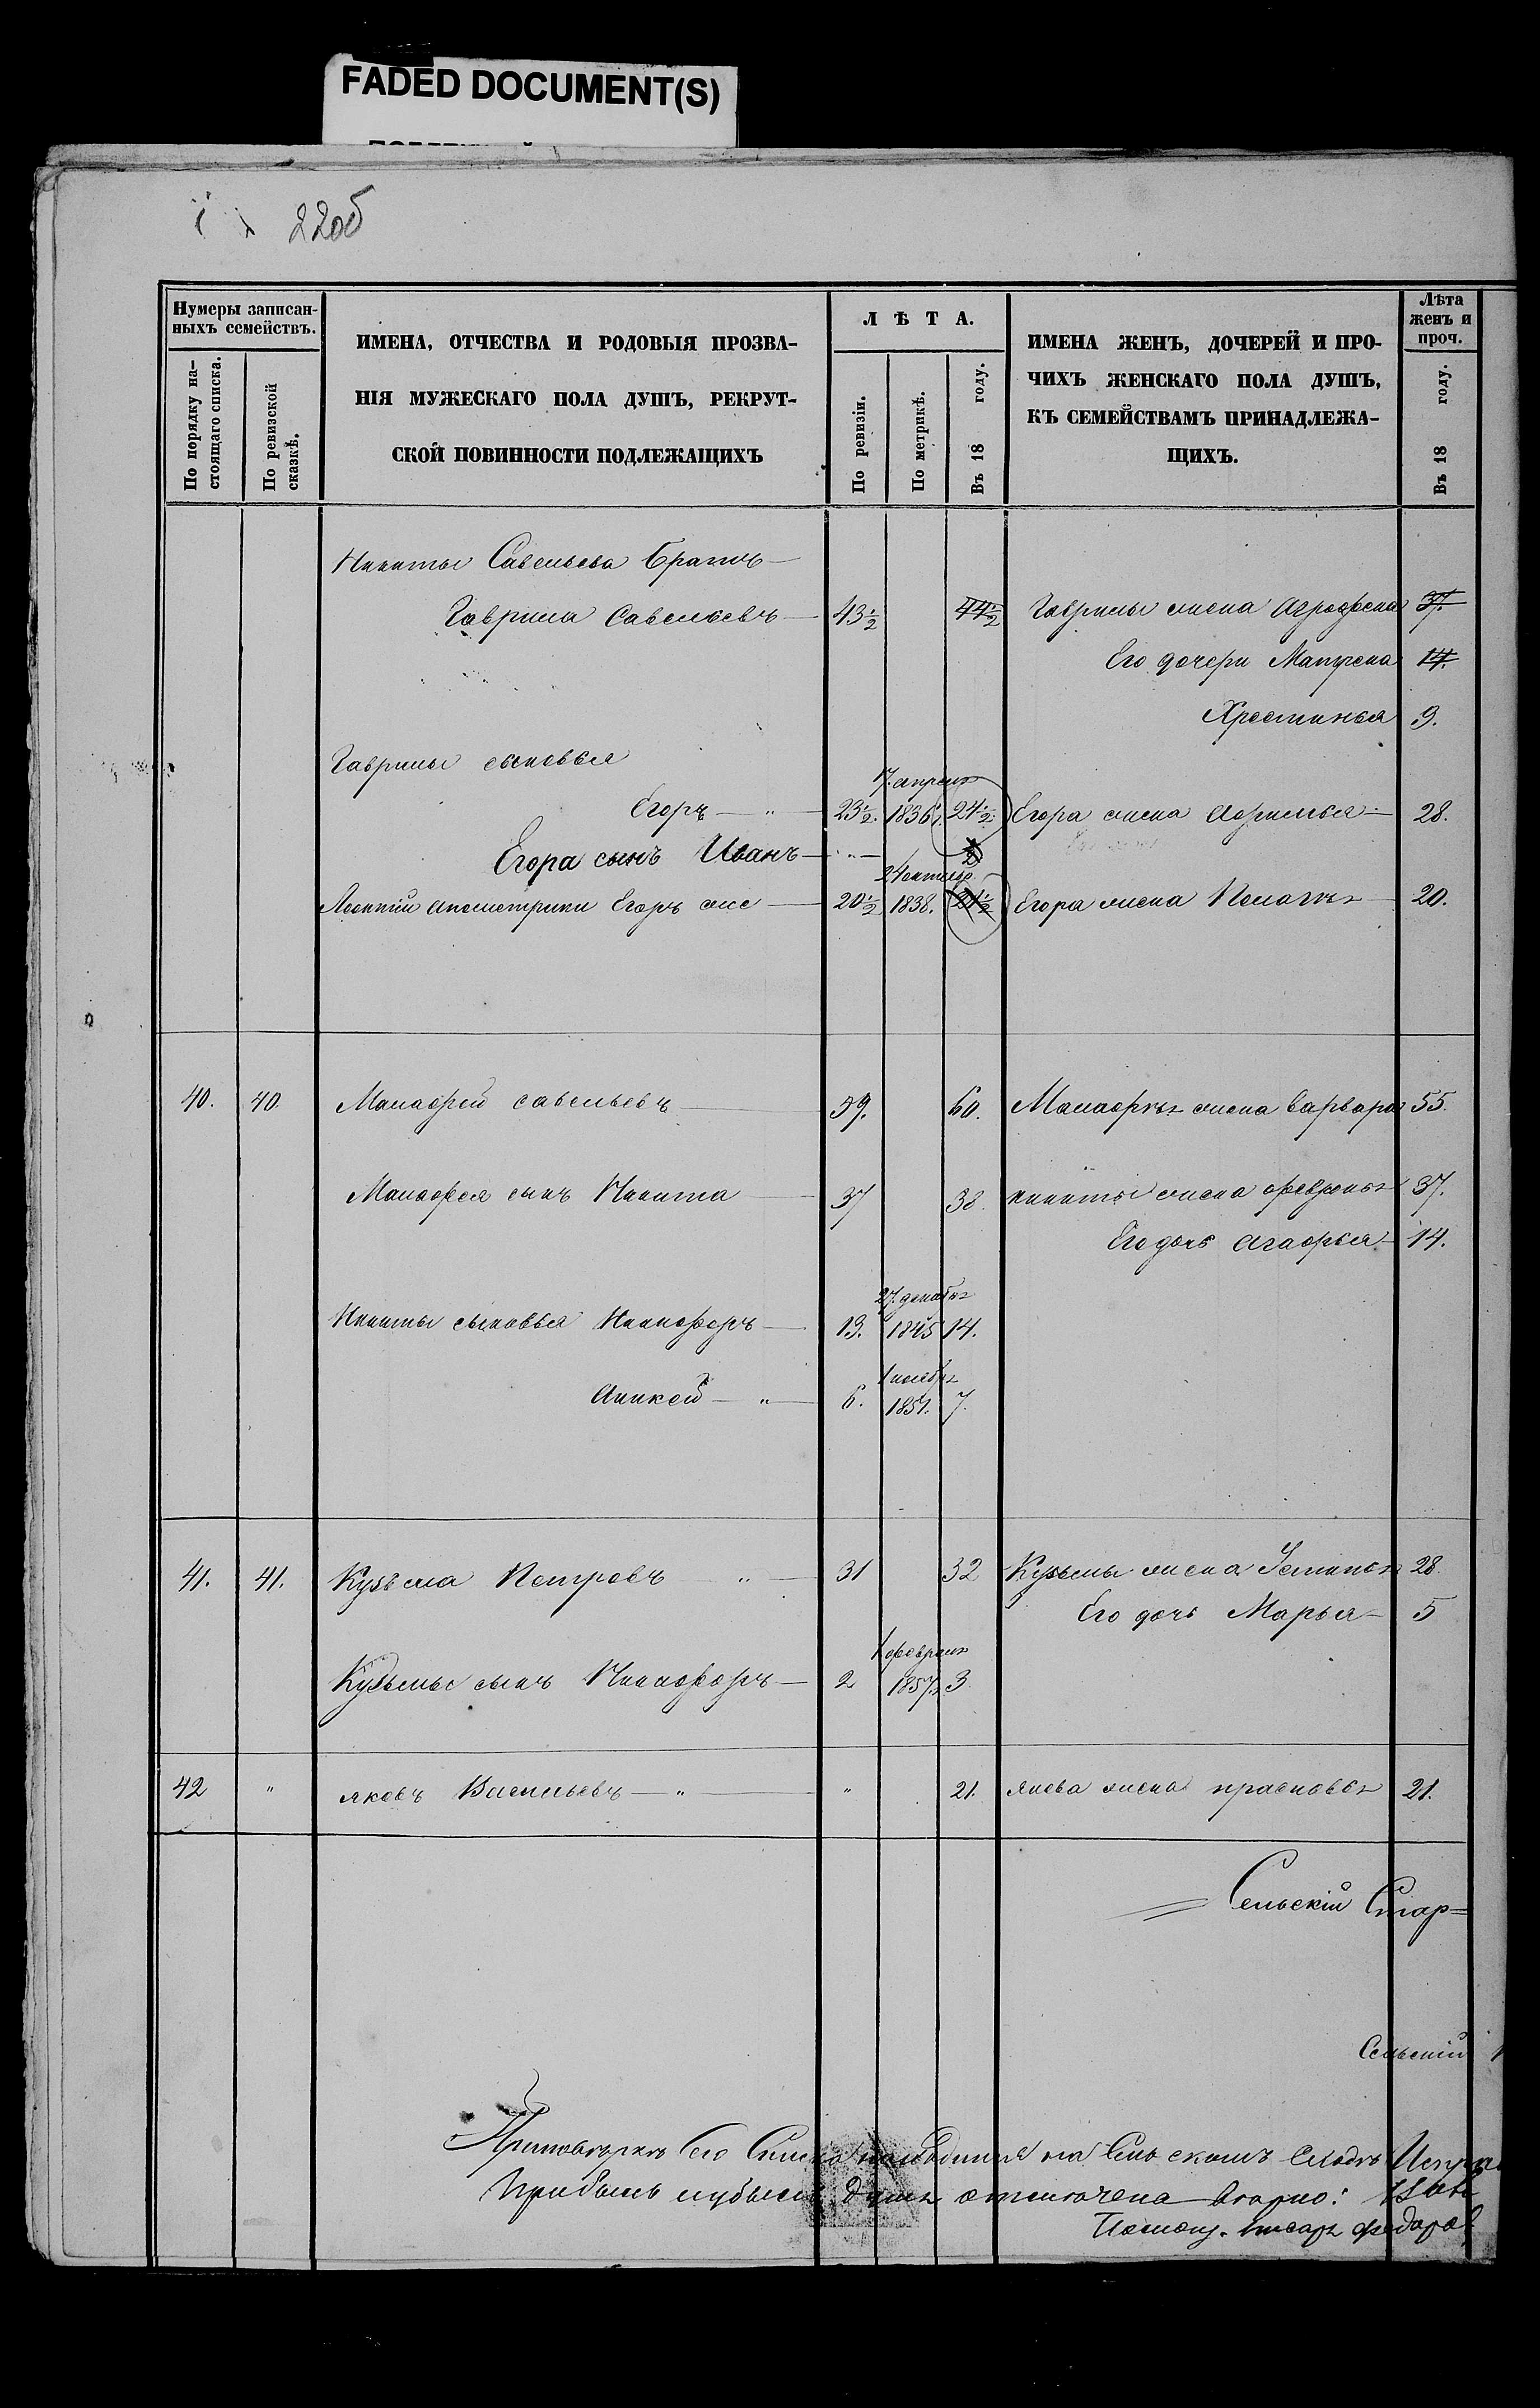 FADED DOCUMENT(S)
22об
Нумеры записан-
ныхъ семействъ.
По порядку на-
стоящаго списка.
По ревизской
сказкѣ.
ИМЕНА, ОТЧЕСТВА И РОДОВЫЯ ПРОЗВА-
НІЯ МУЖЕСКАГО ПОЛА ДУШЪ, РЕКРУТ-
СКОЙ ПОВИННОСТИ ПОДЛЕЖАЩИХЪ
ЛѢТА.
По ревизіи.
По метрикѣ.
Въ 18 году.
ИМЕНА ЖЕНЪ, ДОЧЕРЕЙ И ПРО-
ЧИХЪ ЖЕНСКАГО ПОЛА ДУШЪ,
КЪ СЕМЕЙСТВАМЪ ПРИНАДЛЕЖА-
ЩИХЪ.
Лѣта
женъ и
проч.
Въ 18 году.
Никиты Савельева братъ
Гаврила Савельевъ 43½ 44½ Гаврилы жена Аграфена 37.
Его дочери Матрена 14.
Хрестинья 9.
Гаврилы сыновья
17 апреля
Егоръ — " — 23½. 1836. 24½. Егора жена Афимья 28.
Егора сынъ Иванъ — " — 2
24 октябр.
Егоръ же 20½ 1838. 21½ Егора жена 20.
40. 40. Малафей Савельевъ 59. 60. Малафея жена Варвара 55.
Малафея сынъ Никита 37 38. Никиты жена Февронья 37.
Его дочь Агафья 14.
27 декабря
Никиты сыновья Никифоръ 13. 1845 14.
1 ноября
Аникей — " — 6. 1851. 7.
41. 41. Кузьма Петровъ " 31 32 Кузьмы жена Устинья 28.
Его дочь Марья 5
1 февраля
Кузьмы сынъ Никифоръ 2 1857 3.
42 " Яковъ Васильевъ — " — " 21. Якова жена Прасковья 21.
Сельскій Стар=
Сельскій
При повѣркѣ сего Списка на Сельскомъ Сходѣ
Прибыль и убыль душъ отмечена верно:
Помощ. писаря Федоров